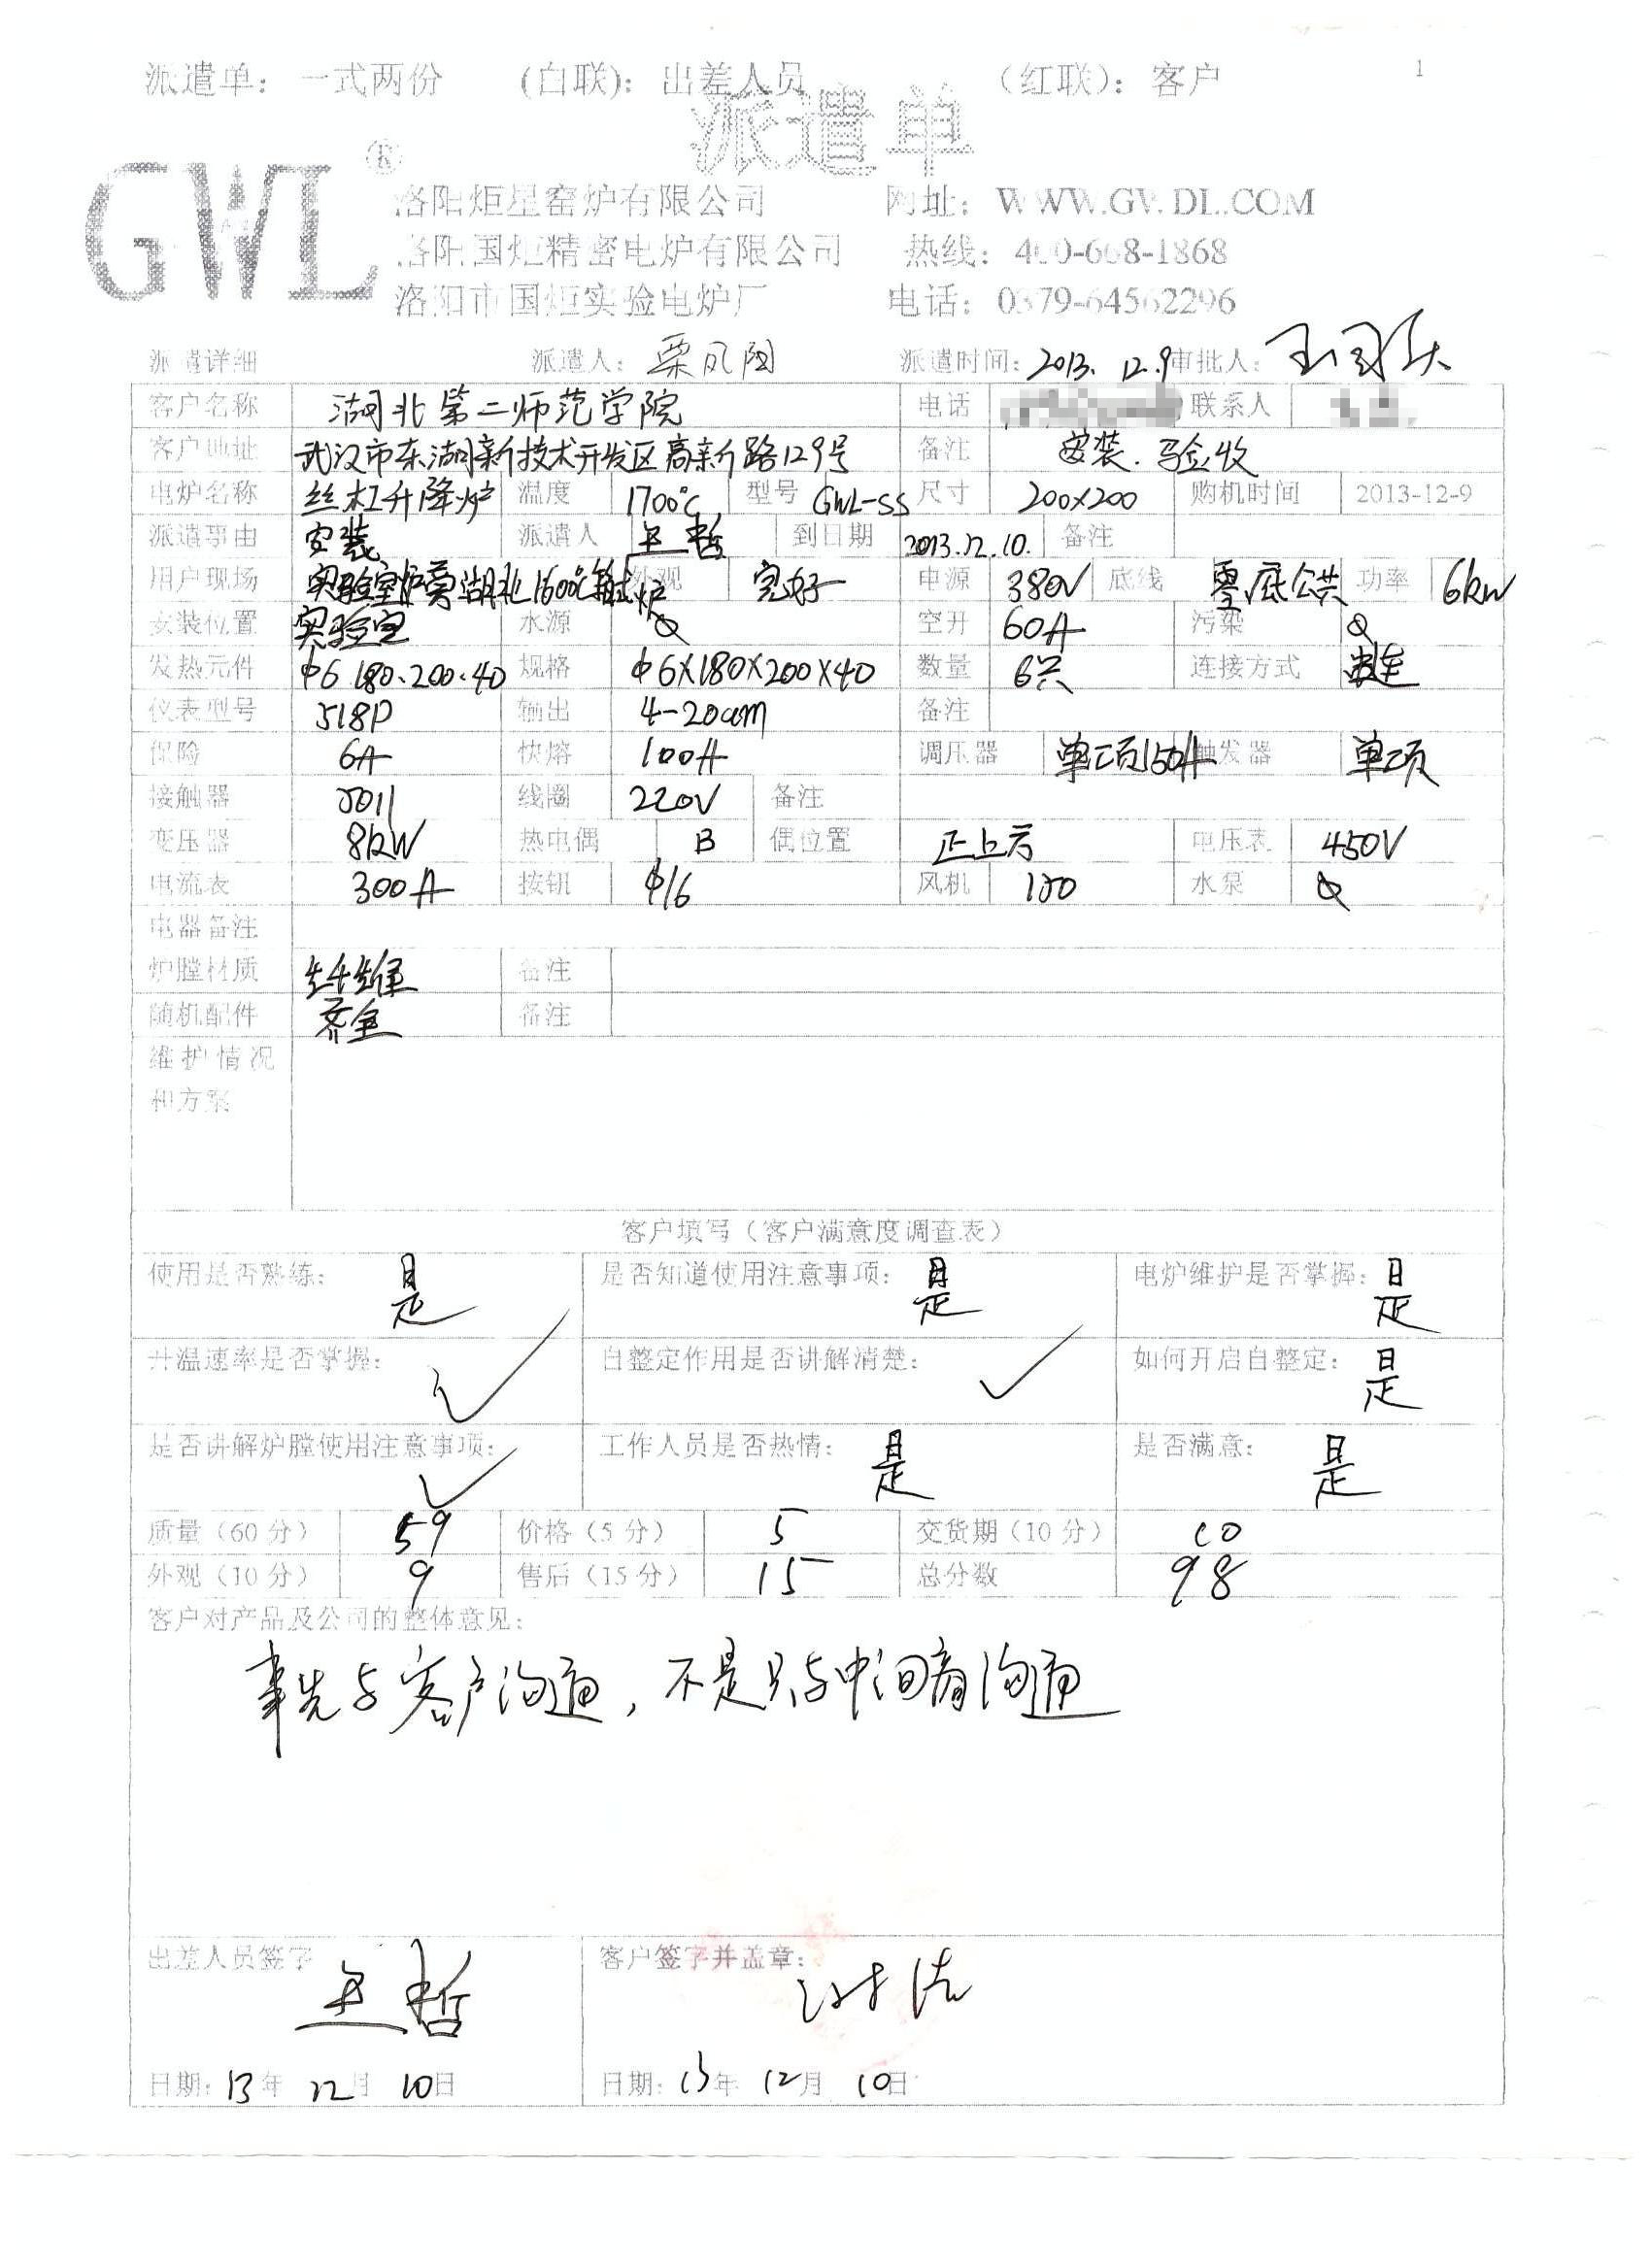 派遣单： 一式两份 (白联)：出差人员 （红联）：客户 1
派遣单
GWL®
洛阳炬星窑炉有限公司 网址：WWW.GWDL.COM
洛阳国炬精密电炉有限公司 热线：400-668-1868
洛阳市国炬实验电炉厂 电话：0379-64562296
派遣详细 派遣人：栗凤阁 派遣时间：2013.12.9 审批人：
客户名称 湖北第二师范学院 电话 联系人
客户地址 武汉市东湖新技术开发区高新路129号 备注 安装.验收
电炉名称 丝杠升降炉 温度 1700℃ 型号 GWL-SS 尺寸 200×200 购机时间 2013-12-9
派遣事由 安装 派遣人 王哲 到日期 2013.12.10. 备注
用户现场 实验室炉旁湖北1600℃箱式炉 外观 完好 电源 380V 底线 零底公共 功率 6kW
安装位置 实验室 水源 空开 60A 污染
发热元件 φ6.180.200.40 规格 φ6×180×200×40 数量 6只 连接方式 串连
仪表型号 518P 输出 4-20am 备注
保险 6A 快熔 100A 调压器 单项150A 触发器 单项
接触器 5011 线圈 220V 备注
变压器 8kW 热电偶 B 偶位置 正上方 电压表 450V
电流表 300A 按钮 φ16 风机 120 水泵
电器备注
炉膛材质 纤维 备注
随机配件 齐全 备注
维护情况
和方案
客户填写（客户满意度调查表）
使用是否熟练： 是 是否知道使用注意事项： 是 电炉维护是否掌握： 是
升温速率是否掌握： ✓ 自整定作用是否讲解清楚： ✓ 如何开启自整定： 是
是否讲解炉膛使用注意事项： ✓ 工作人员是否热情： 是 是否满意： 是
质量（60分） 59 价格（5分） 5 交货期（10分） 10
外观（10分） 9 售后（15分） 15 总分数 98
客户对产品及公司的整体意见：
事先与客户沟通，不是只与中间商沟通
出差人员签字 王哲 客户签字并盖章：
日期：13年 12月 10日 日期：13年 12月 10日